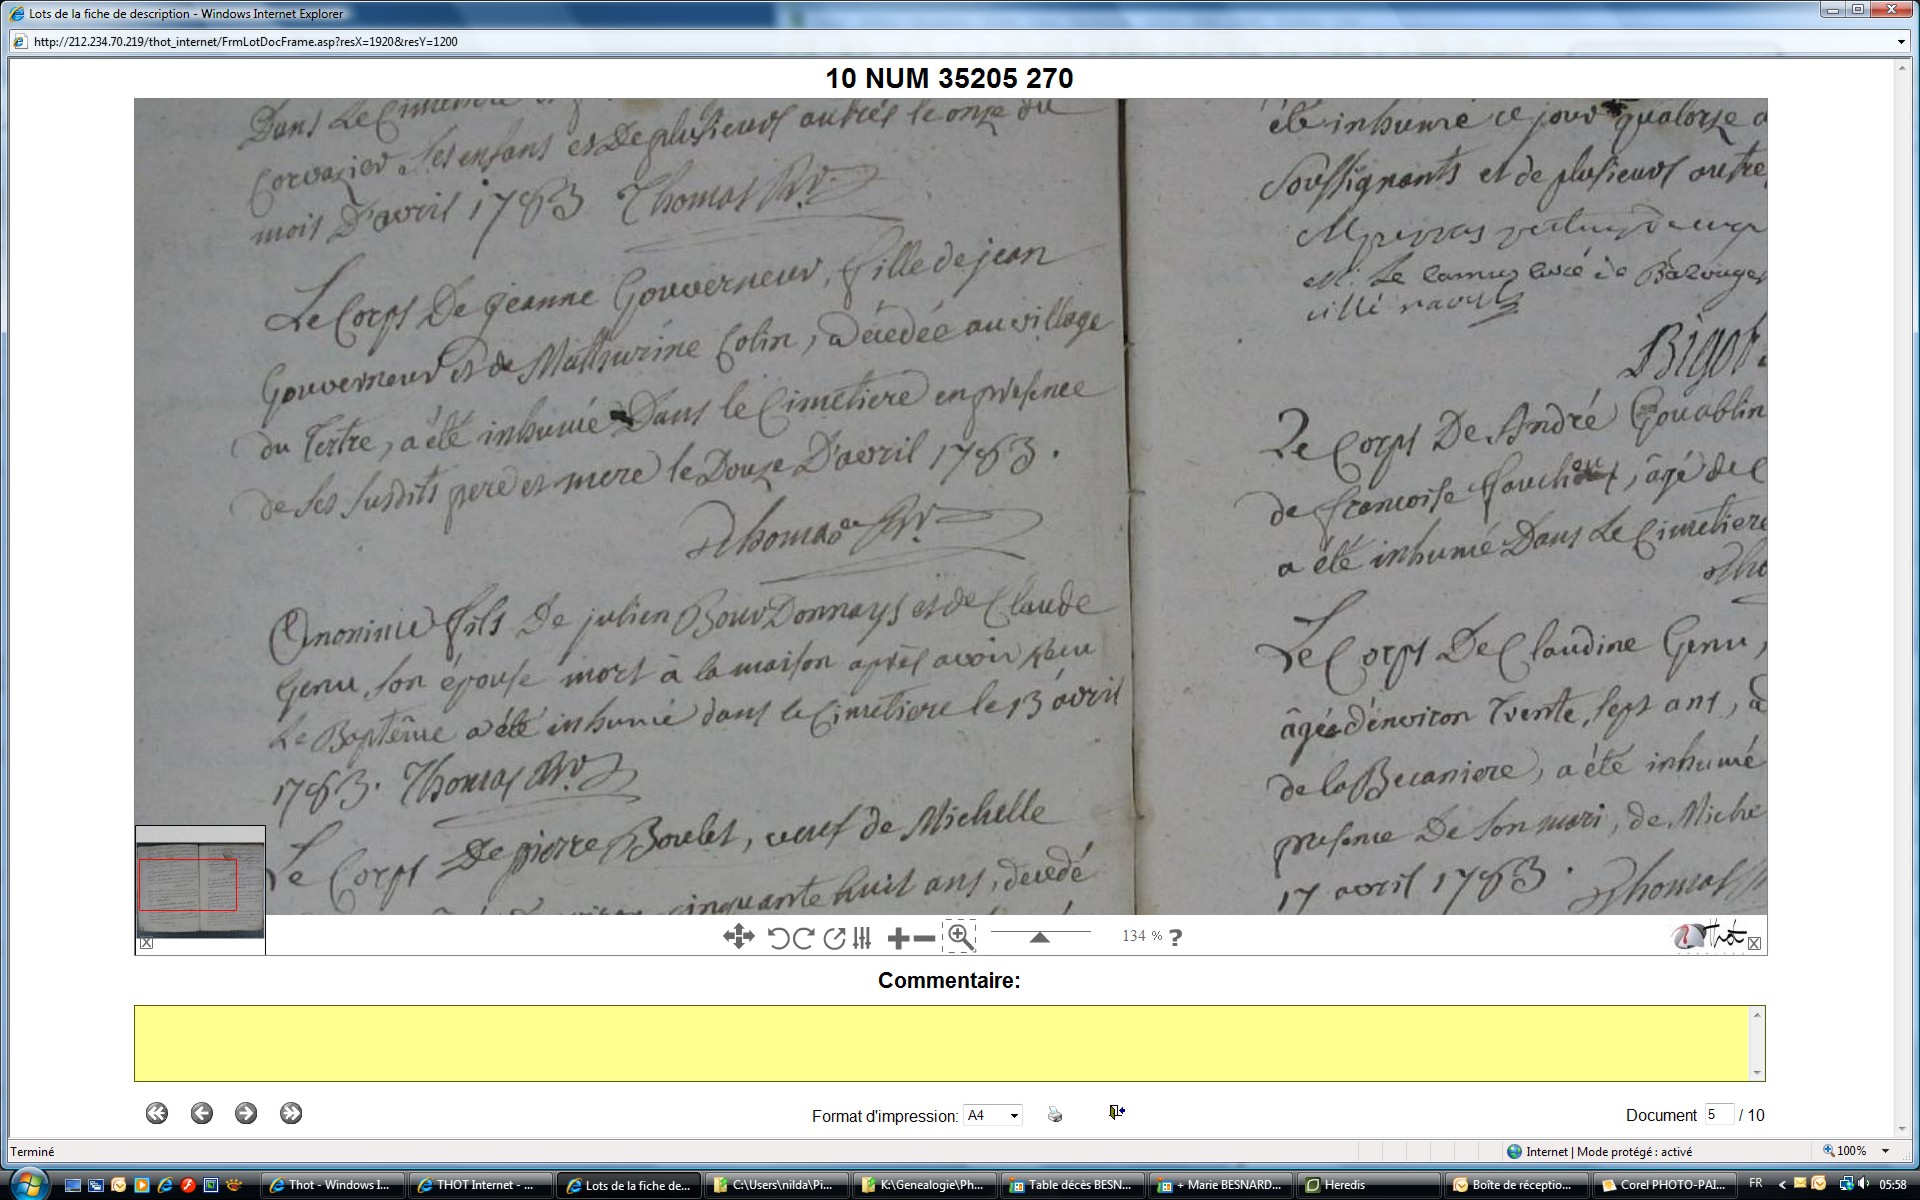 Lots de la fiche de description - Windows Internet Explorer
http://212.234.70.219/thot_internet/FrmLotDocFrame.asp?resX=1920&resY=1200
10 NUM 35205 270
Dans Le Cimetiere
Corvazier, ses enfans et De plusieurs autres le onze du
mois D'avril 1763 Thomas
Le Corps De jeanne Gouverneur, fille de jean
Gouverneur et de Mathurine Colin, a décédée au village
du Tertre, a été inhumé Dans le Cimetiere en présence
de ses susdits pere et mere le Douze D'avril 1763.
Thomas
Anonime fils De julien BourDonnays et de Claude
Genu, son épouse mort à la maison après avoir
Le Baptême a été inhumé dans le Cimetiere le 13 avril
1763. Thomas
Le Corps De pierre Boulet, veuf de Michelle
cinquante huit ans, decedé
été inhumé ce jour quatorze
Soussignants et de plusieurs autre
Bazouges
Bigot
Le Corps De André Gouablin
de francoise, âgé de
a été inhumé Dans Le Cimetiere
Tho
Le Corps De Claudine Genu,
âgée d'environ Trente sept ans, a
de la Becaniere, a été inhumé
presence De son mari, de Miche
17 avril 1763. Thomas
134 % ?
Thot
Commentaire:
Format d'impression: A4
Document 5 / 10
Terminé
Internet | Mode protégé : activé
100%
Thot - Windows I...
THOT Internet - ...
Lots de la fiche de...
C:\Users\nilda\Pi...
K:\Genealogie\Ph...
Table décès BESN...
+ Marie BESNARD...
Heredis
Boîte de réceptio...
Corel PHOTO-PAI...
FR
05:58